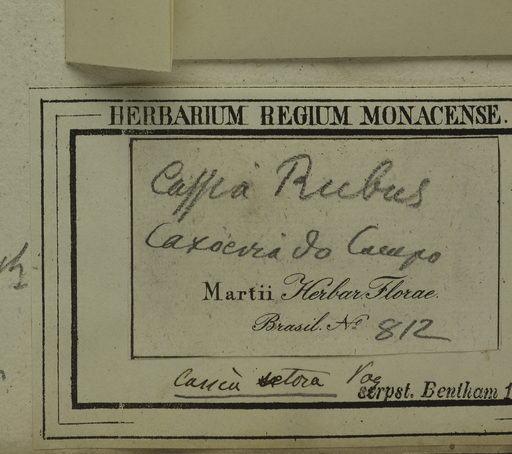 HERBARIUM REGIUM MONACENSE.
Cassia Rubus
Caxoeira do Campo
Martii Herbar. Florae
Brasil. No 812
Cassia setosa Vog
scrpst. Bentham 1